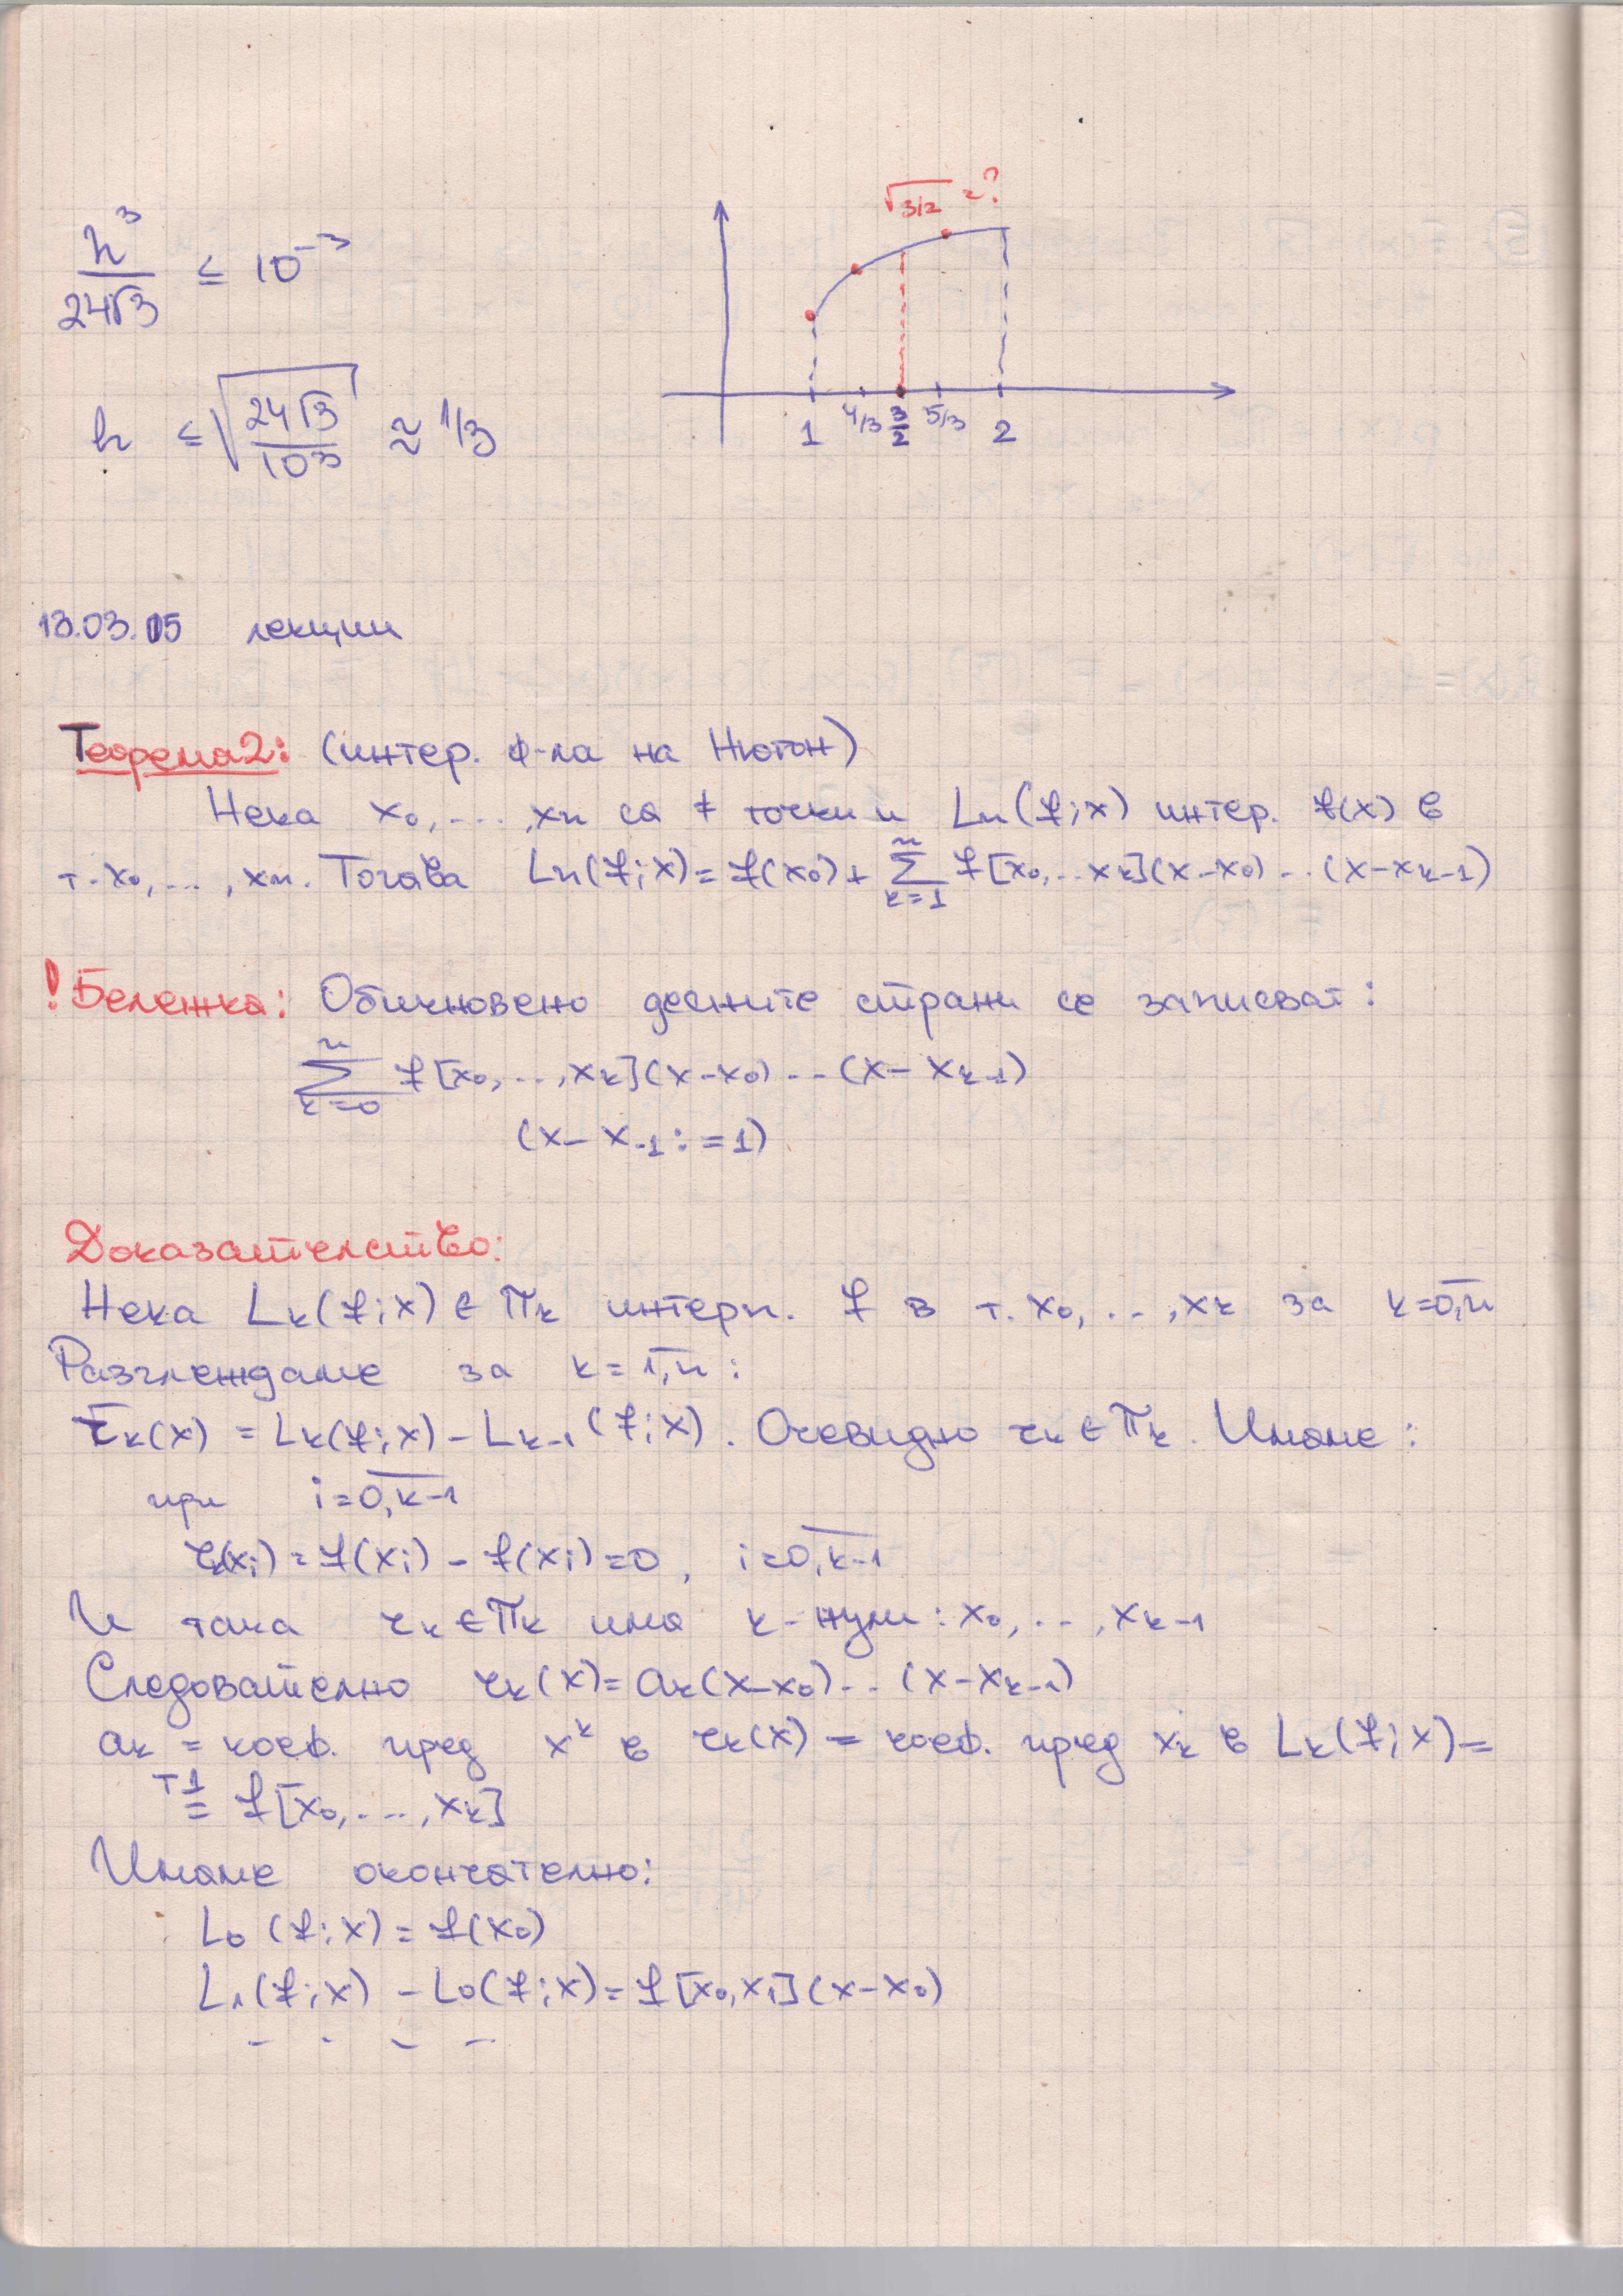 h³/(24√3) ≤ 10⁻³
√3/2 ≈ ?
h ≤ √(24√3/10³) ≈ 1/3
1 4/3 3/2 5/3 2
13.03.05 лекции
Теорема2: (интер. ф-ла на Нютон)
Нека x₀,...,xn са ≠ точки и Ln(f;x) интер. f(x) в
т. x₀,...,xn. Тогава Ln(f;x) = f(x₀) + ∑ₖ₌₁ⁿ f[x₀,..xₖ](x-x₀)...(x-xₖ₋₁)
! Бележка: Обикновено десните страни се записват:
∑ₖ₌₀ⁿ f[x₀,...,xₖ](x-x₀)...(x-xₖ₋₁)
(x-x₋₁:=1)
Доказателство:
Нека Lₖ(f;x) ∈ πₖ интерп. f в т. x₀,...,xₖ за k=0,n̅
Разглеждаме за k=1,n̅:
τₖ(x) = Lₖ(f;x) - Lₖ₋₁(f;x). Очевидно τₖ ∈ πₖ. Имаме:
при i=0,k-1
τₖ(xᵢ) = f(xᵢ) - f(xᵢ) = 0, i=0,k-1
И така τₖ ∈ πₖ има k-нули: x₀,...,xₖ₋₁
Следователно τₖ(x) = aₖ(x-x₀)...(x-xₖ₋₁)
aₖ = коеф. пред xᵏ в τₖ(x) = коеф. пред xₖ в Lₖ(f;x) =
т1
= f[x₀,...,xₖ]
Имаме окончателно:
L₀(f;x) = f(x₀)
L₁(f;x) - L₀(f;x) = f[x₀,x₁](x-x₀)
- - - -